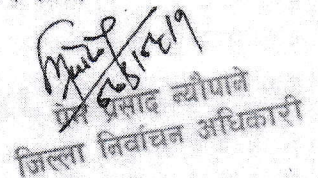 प्रेम प्रसाद न्यौपाने
जिल्ला निर्वाचन अधिकारी